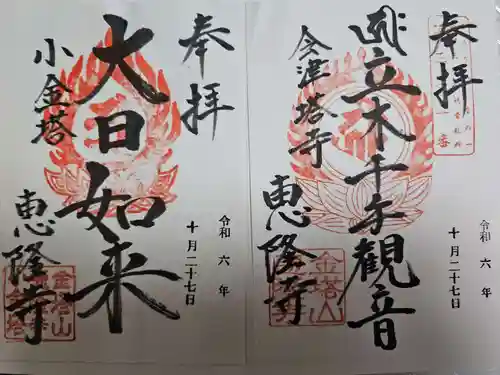 奉拝
令和六年
十月二十七日
立木千手観音
会津塔寺
恵隆寺
金塔山
奉拝
令和六年
十月二十七日
大日如来
小金塔
恵隆寺